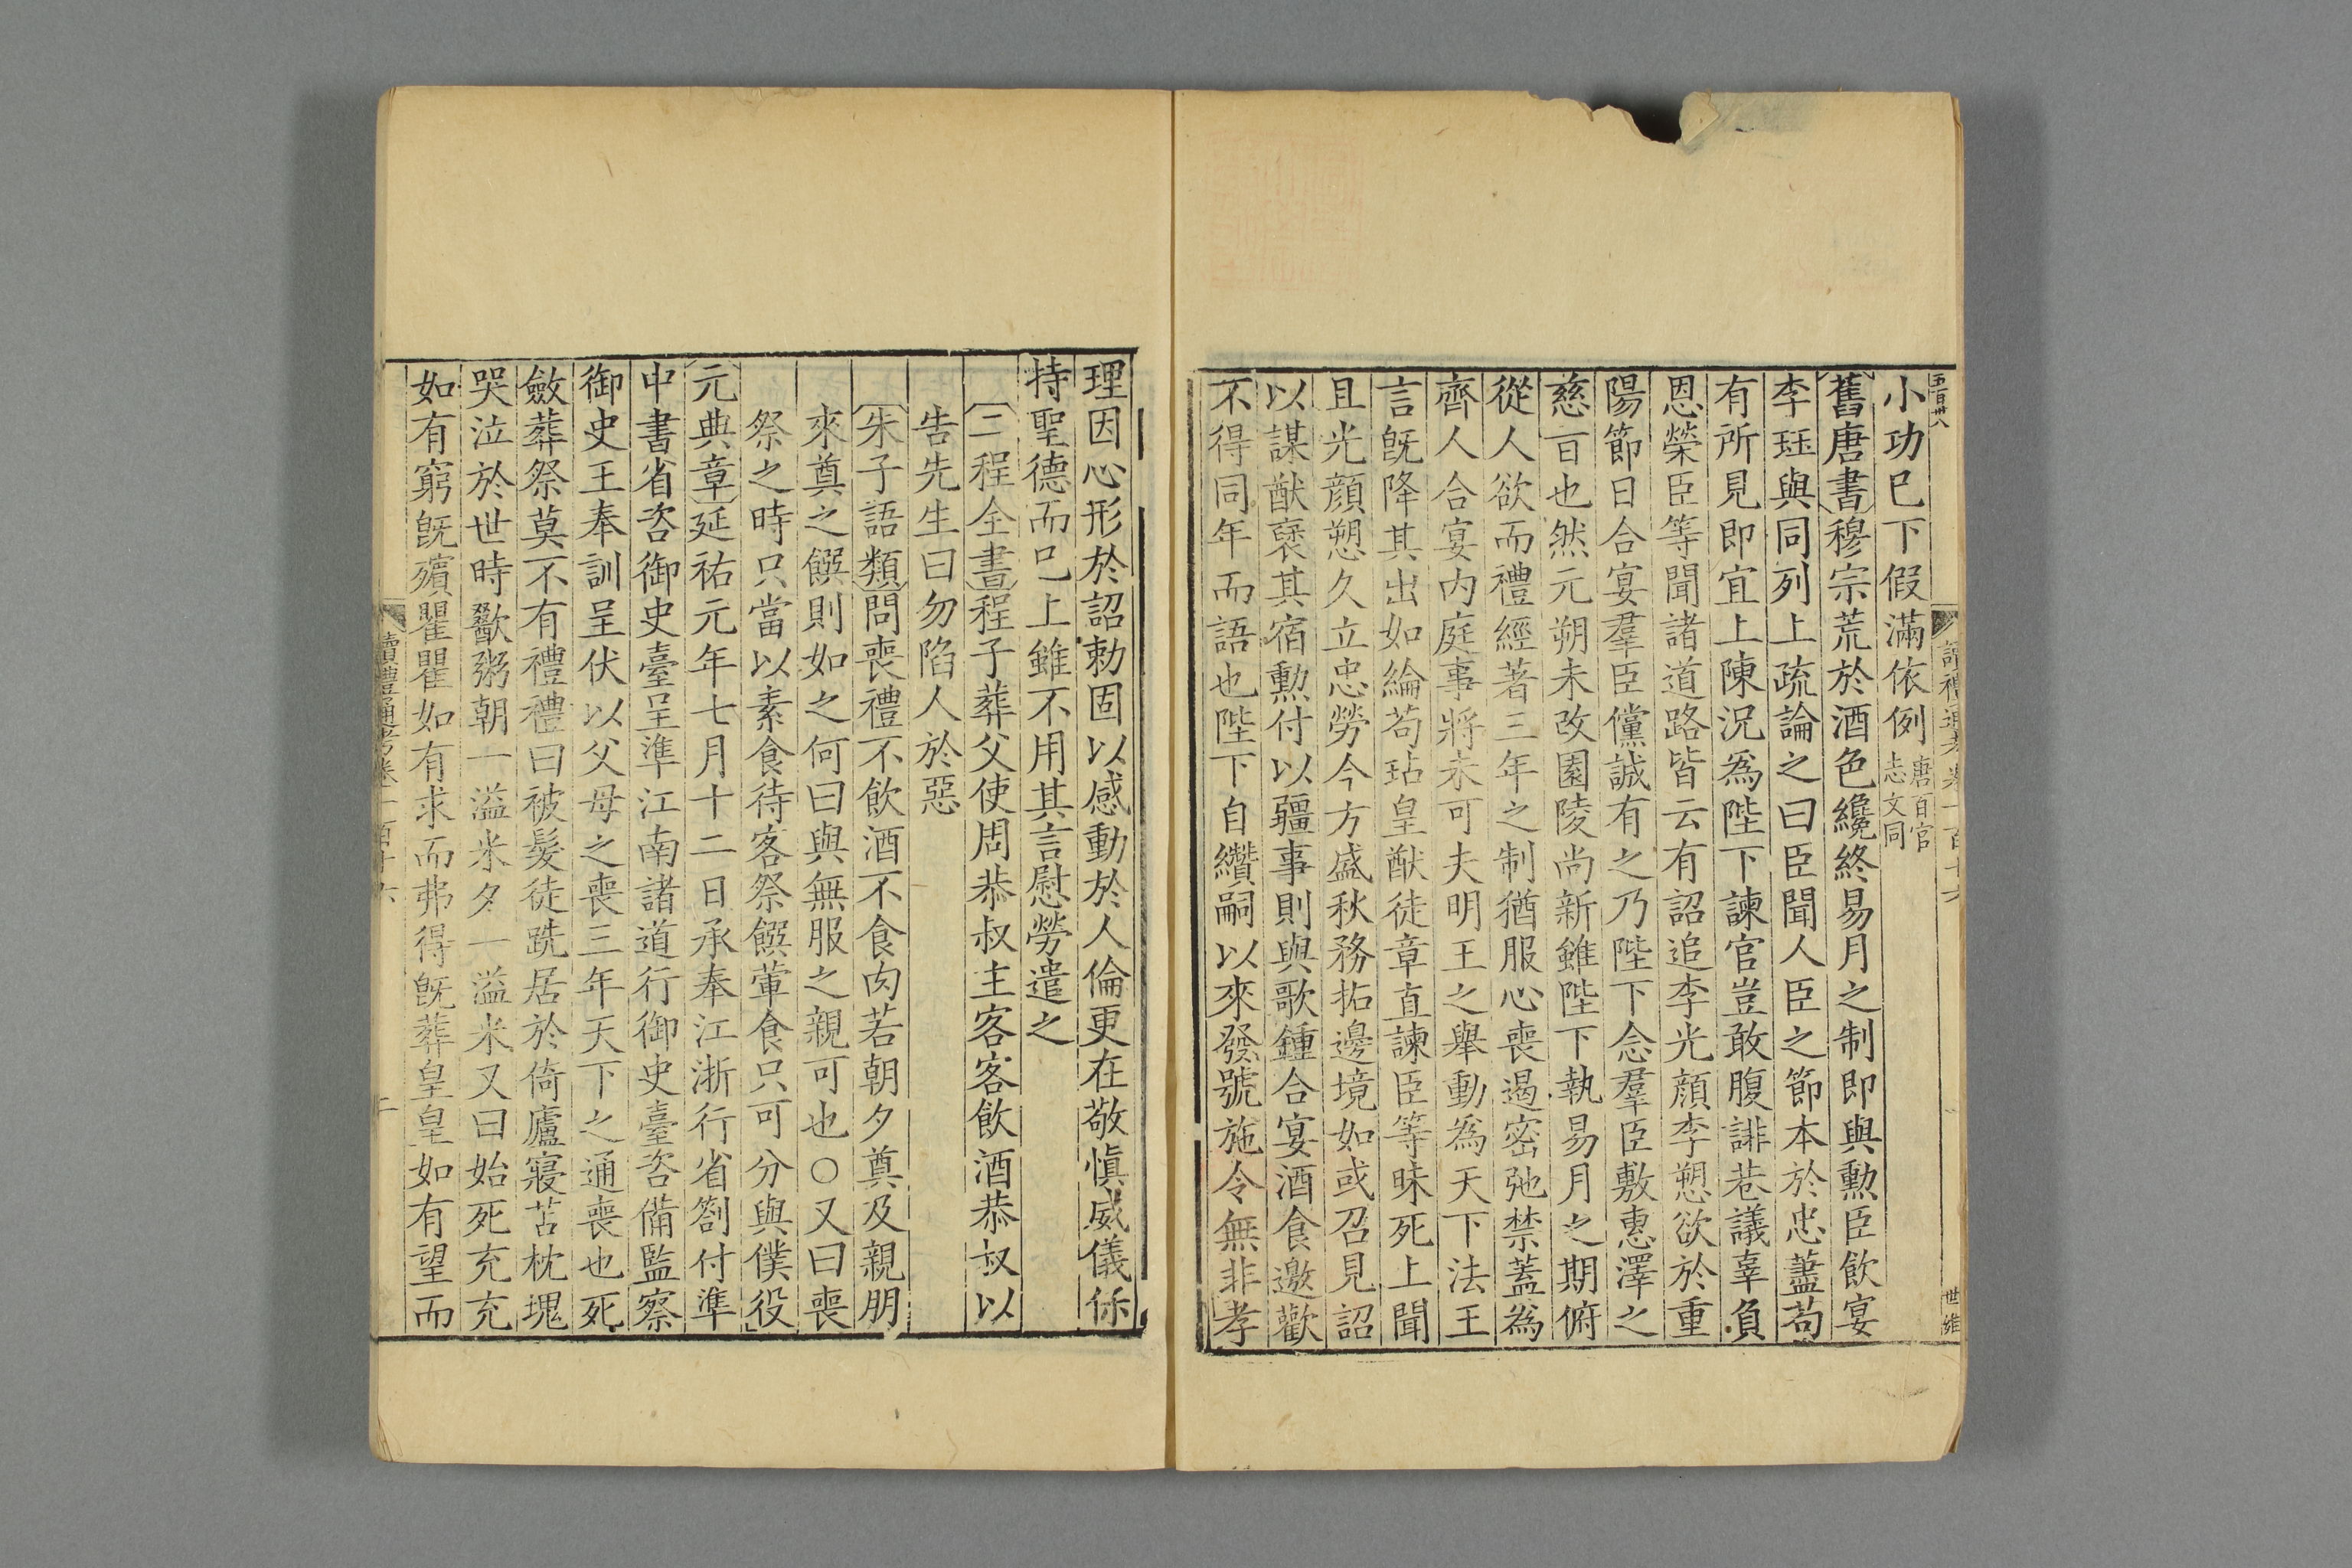 五百卅八
讀禮通考卷一百十六
世維
小功已下假滿依例唐百官志文同
舊唐書穆宗荒於酒色纔終易月之制即與勲臣飲宴
李珏與同列上疏論之曰臣聞人臣之節本於忠藎苟
有所見即宜上陳況為陛下諫官豈敢腹誹巷議辜負
恩榮臣等聞諸道路皆云有詔追李光顔李愬欲於重
陽節日合宴羣臣儻誠有之乃陛下念羣臣敷惠澤之
慈百也然元朔未改園陵尚新雖陛下執易月之期俯
從人欲而禮經著三年之制猶服心喪遏密弛禁蓋為
齊人合宴内庭事將未可夫明王之舉動為天下法王
言旣降其出如綸苟玷皇猷徒章直諫臣等昧死上聞
且光顔愬久立忠勞今方盛秋務拓邊境如或召見詔
以謀猷襃其宿勲付以疆事則與歌鍾合宴酒食邀歡
不得同年而語也陛下自纘嗣以來發號施令無非孝
理因心形於詔勅固以感動於人倫更在敬愼威儀保
持聖德而已上雖不用其言慰勞遣之
二程全書程子葬父使周恭叔主客客飲酒恭叔以
告先生曰勿陷人於惡
朱子語類問喪禮不飲酒不食肉若朝夕奠及親朋
來奠之饌則如之何曰與無服之親可也○又曰喪
祭之時只當以素食待客祭饌葷食只可分與僕役
元典章延祐元年七月十二日承奉江浙行省劄付準
中書省咨御史臺呈準江南諸道行御史臺咨備監察
御史王奉訓呈伏以父母之喪三年天下之通喪也死
斂葬祭莫不有禮禮曰被髮徒跣居於倚廬寢苫枕塊
哭泣於世時歠粥朝一溢米夕一溢米又曰始死充充
如有窮旣殯瞿瞿如有求而弗得旣葬皇皇如有望而
讀禮通考卷一百十六